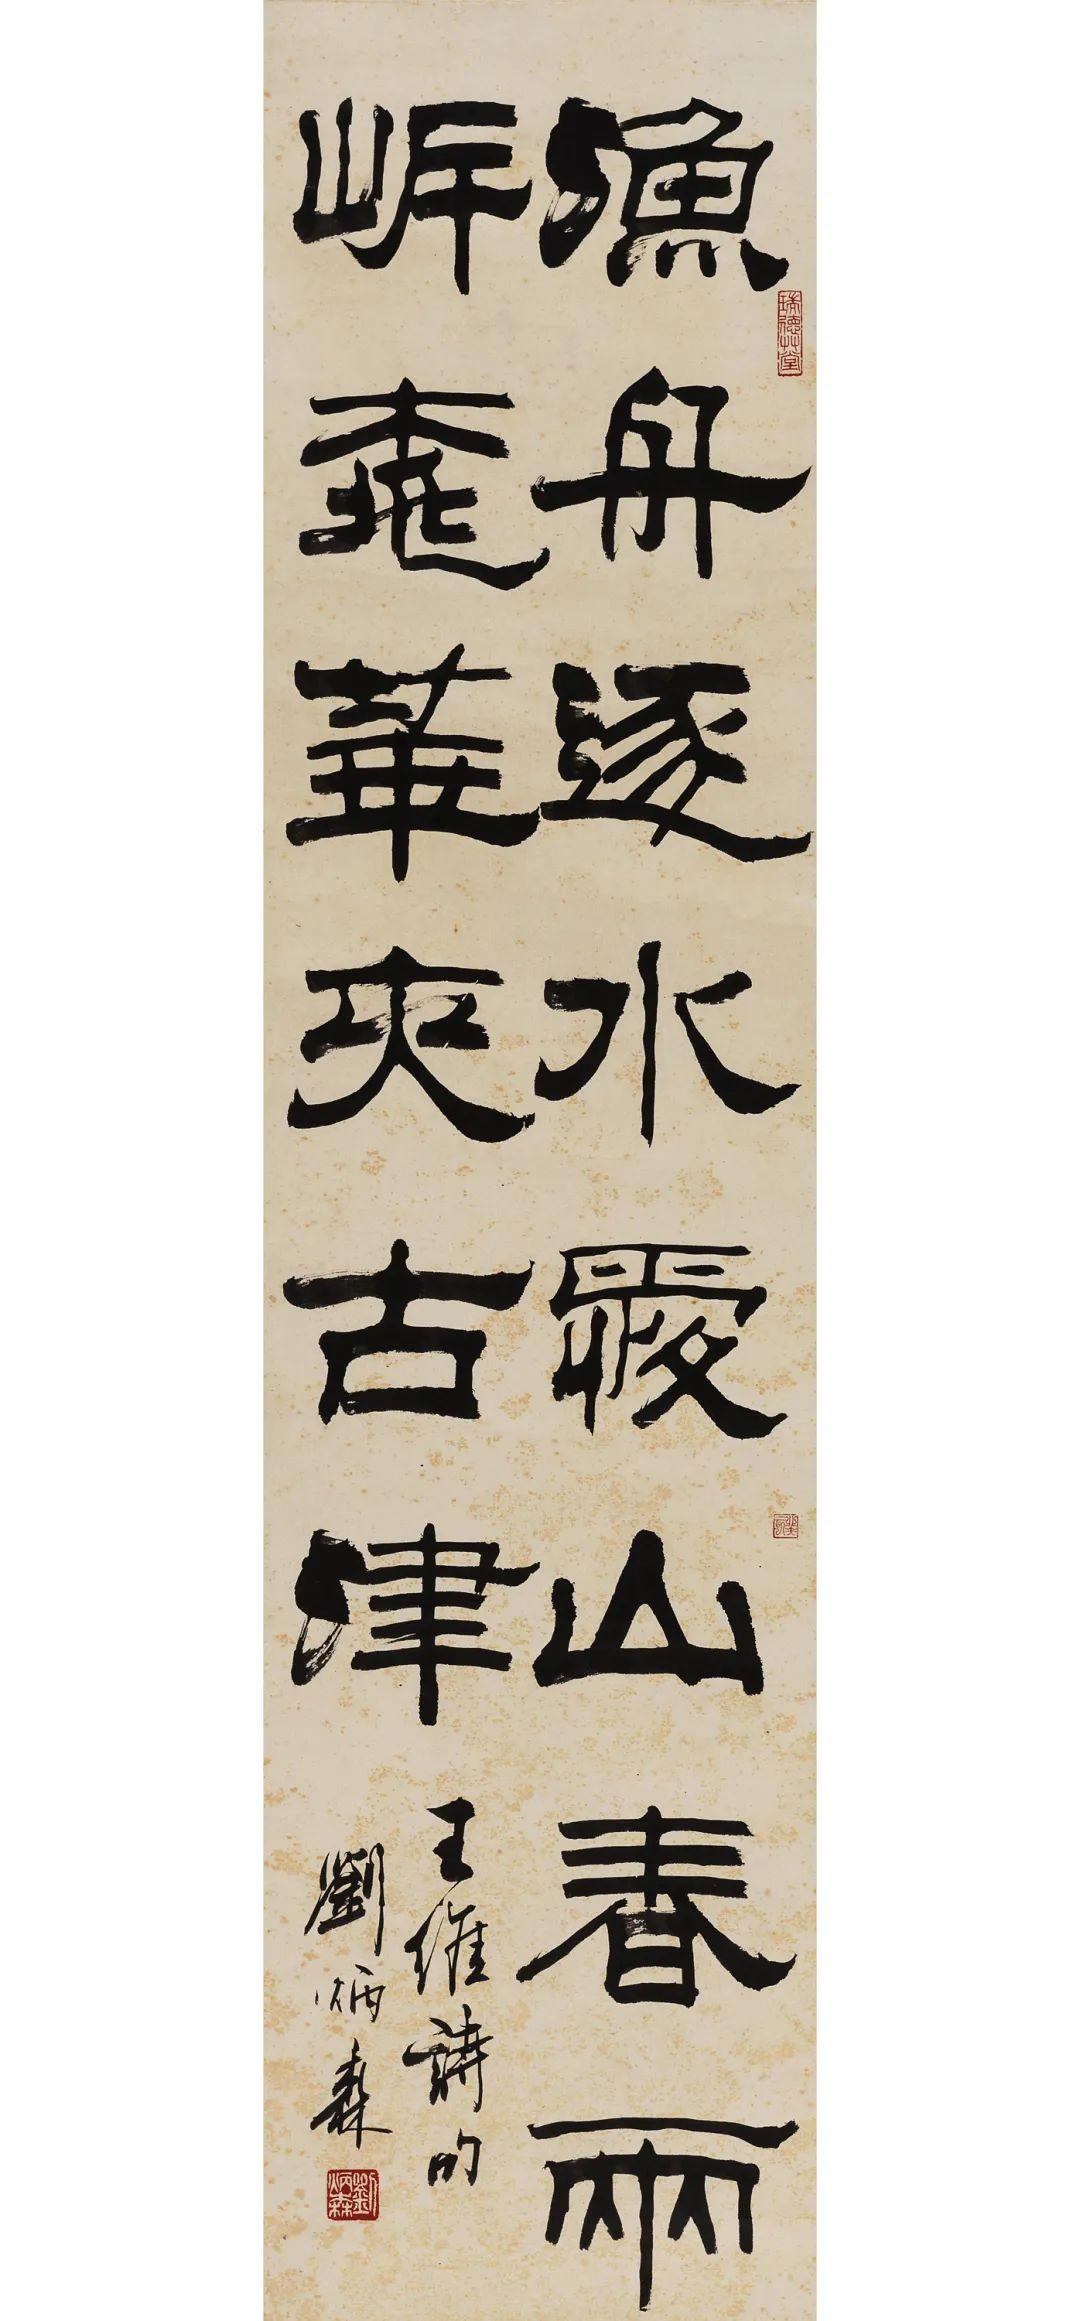 漁舟逐水愛山春兩
岸桃華夾古津
王維詩句
劉炳森
劉炳森